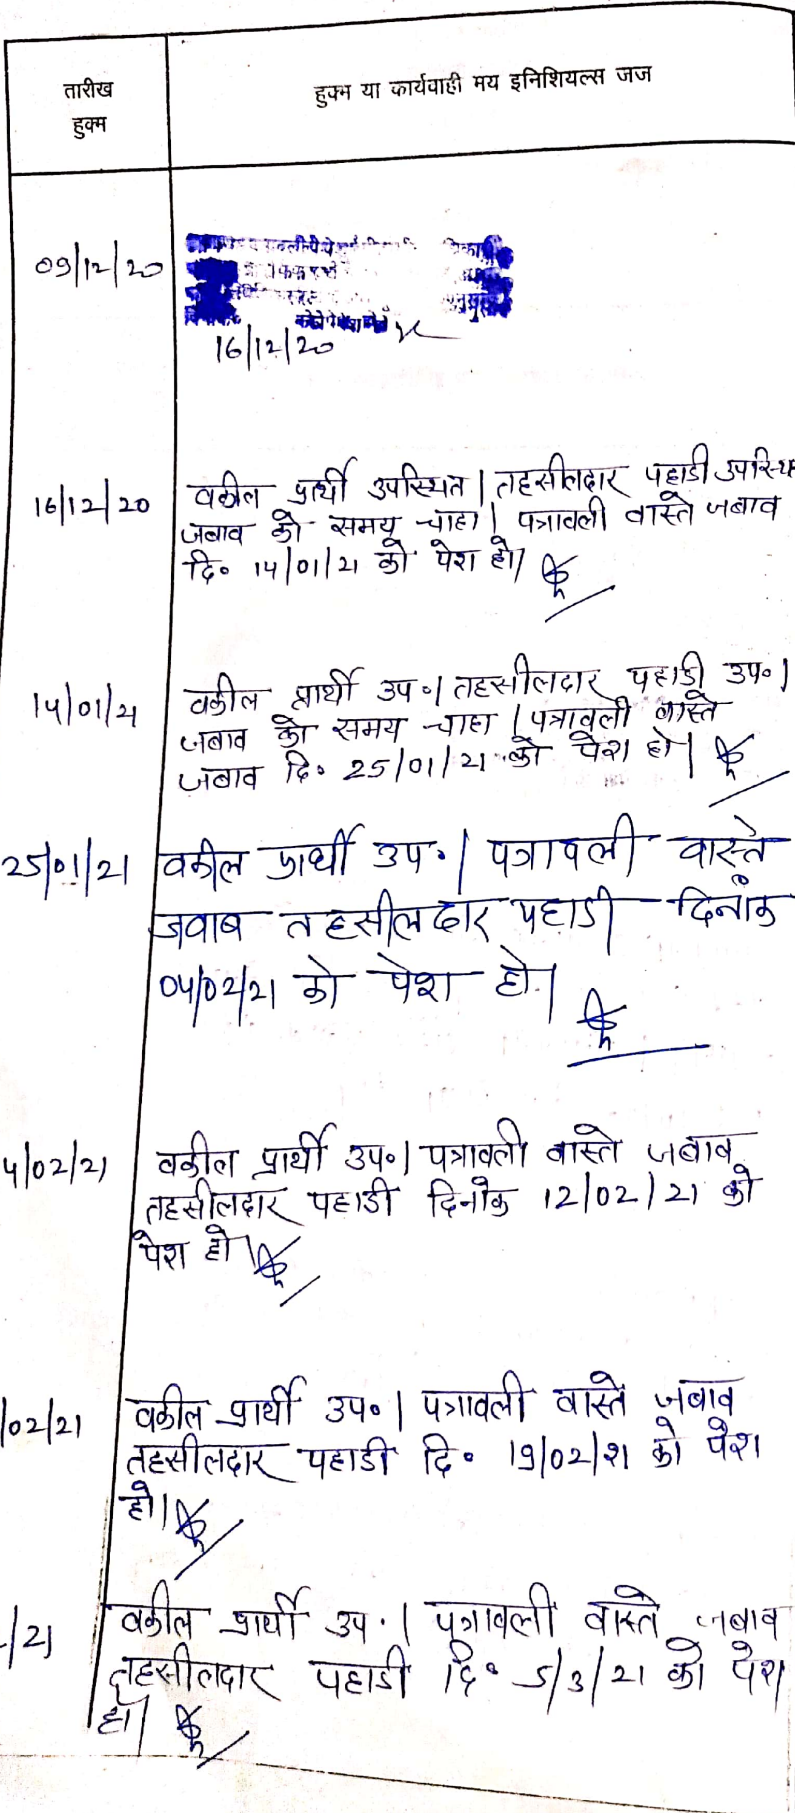 तारीख
हुक्म
हुक्म या कार्यवाही मय इनिशियल्स जज
09/12/20
16/12/20
16/12/20
वकील प्रार्थी उपस्थित। तहसीलदार पहाडी उपस्थि
जबाव को समय चाहा। पत्रावली वास्ते जबाव
दि० 14/01/21 को पेश हो।
14/01/21
वकील प्रार्थी उप०। तहसीलदार पहाडी उप०।
जबाव को समय चाहा। पत्रावली वास्ते
जबाव दि० 25/01/21 को पेश हो।
25/01/21
वकील प्रार्थी उप०। पत्रावली वास्ते
जवाब तहसीलदार पहाडी दिनांक
04/02/21 को पेश हो।
4/02/21
वकील प्रार्थी उप०। पत्रावली वास्ते जबाव
तहसीलदार पहाडी दिनांक 12/02/21 को
पेश हो।
/02/21
वकील प्रार्थी उप०। पत्रावली वास्ते जबाव
तहसीलदार पहाडी दि० 19/02/21 को पेश
हो।
/21
वकील प्रार्थी उप०। पत्रावली वास्ते जबाव
तहसीलदार पहाडी दि० 5/3/21 को पेश
हो।